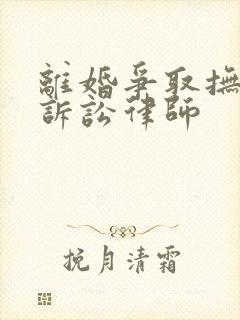 離婚爭取撫
訴訟律師
挽月清霜